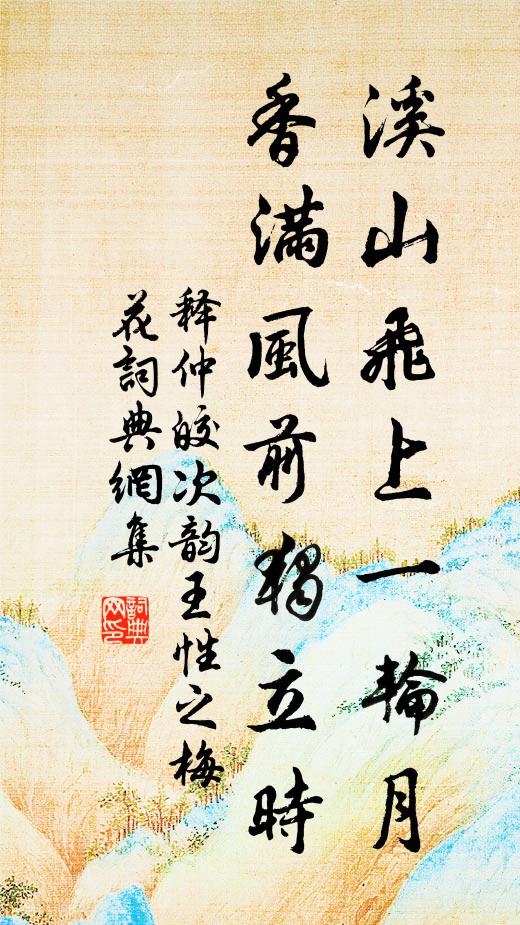 溪山飛上一輪月
香滿風前獨立時
释仲皎次韵王性之梅
花詞典網集
詞典
网印